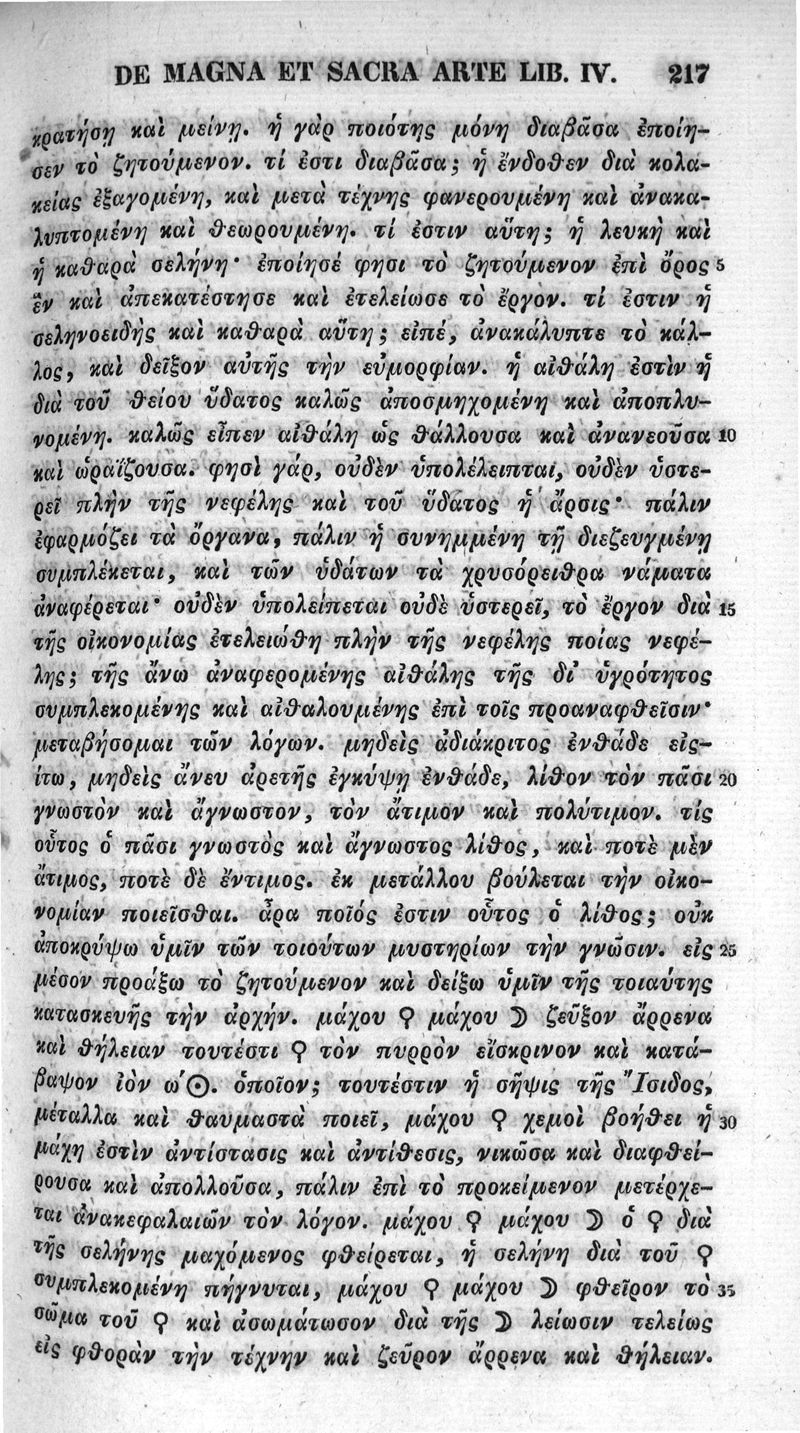 DE MAGNA ET SACRA ARTE LIB. IV. 217
κρατήσῃ καὶ μείνῃ. ἡ γὰρ ποιότης μόνη διαβᾶσα ἐποίη-
σεν τὸ ζητούμενον. τί ἐστι διαβᾶσα; ἡ ἔνδοθεν διὰ κολα-
κείας ἐξαγομένη, καὶ μετὰ τέχνης φανερουμένη καὶ ἀνακα-
λυπτομένη καὶ θεωρουμένη. τί ἐστιν αὕτη; ἡ λευκὴ καὶ
ἡ καθαρὰ σελήνη· ἐποίησέ φησι τὸ ζητούμενον ἐπὶ ὄρος 5
ἓν καὶ ἀπεκατέστησε καὶ ἐτελείωσε τὸ ἔργον. τί ἐστιν ἡ
σεληνοειδὴς καὶ καθαρὰ αὕτη; εἰπέ, ἀνακάλυπτε τὸ κάλ-
λος, καὶ δεῖξον αὐτῆς τὴν εὐμορφίαν. ἡ αἰθάλη ἐστὶν ἡ
διὰ τοῦ θείου ὕδατος καλῶς ἀποσμηχομένη καὶ ἀποπλυ-
νομένη. καλῶς εἶπεν αἰθάλη ὡς θάλλουσα καὶ ἀνανεοῦσα 10
καὶ ὡραΐζουσα. φησὶ γάρ, οὐδὲν ὑπολέλειπται, οὐδὲν ὑστε-
ρεῖ πλὴν τῆς νεφέλης καὶ τοῦ ὕδατος ἡ ἄρσις· πάλιν
ἐφαρμόζει τὰ ὄργανα, πάλιν ἡ συνημμένη τῇ διεζευγμένῃ
συμπλέκεται, καὶ τῶν ὑδάτων τὰ χρυσόρειθρα νάματα
ἀναφέρεται· οὐδὲν ὑπολείπεται οὐδὲ ὑστερεῖ, τὸ ἔργον διὰ 15
τῆς οἰκονομίας ἐτελειώθη πλὴν τῆς νεφέλης ποίας νεφέ-
λης; τῆς ἄνω ἀναφερομένης αἰθάλης τῆς δι' ὑγρότητος
συμπλεκομένης καὶ αἰθαλουμένης ἐπὶ τοῖς προαναφθεῖσιν·
μεταβήσομαι τῶν λόγων. μηδεὶς ἀδιάκριτος ἐνθάδε εἰς-
ίτω, μηδεὶς ἄνευ ἀρετῆς ἐγκύψῃ ἐνθάδε, λίθον τὸν πᾶσι 20
γνωστὸν καὶ ἄγνωστον, τὸν ἄτιμον καὶ πολύτιμον. τίς
οὗτος ὁ πᾶσι γνωστὸς καὶ ἄγνωστος λίθος, καὶ ποτὲ μὲν
ἄτιμος, ποτὲ δὲ ἔντιμος. ἐκ μετάλλου βούλεται τὴν οἰκο-
νομίαν ποιεῖσθαι. ἆρα ποῖός ἐστιν οὗτος ὁ λίθος; οὐκ
ἀποκρύψω ὑμῖν τῶν τοιούτων μυστηρίων τὴν γνῶσιν. εἰς 25
μέσον προάξω τὸ ζητούμενον καὶ δείξω ὑμῖν τῆς τοιαύτης
κατασκευῆς τὴν ἀρχήν. μάχου ♀ μάχου ☽ ζεῦξον ἄρρενα
καὶ θήλειαν τουτέστι ♀ τὸν πυρρὸν εἴσκρινον καὶ κατά-
βαψον ἰὸν ω´☉. ὁποῖον; τουτέστιν ἡ σῆψις τῆς Ἴσιδος,
μέταλλα καὶ θαυμαστὰ ποιεῖ, μάχου ♀ χεμοὶ βοήθει ἡ 30
μάχη ἐστὶν ἀντίστασις καὶ ἀντίθεσις, νικῶσα καὶ διαφθεί-
ρουσα καὶ ἀπολλοῦσα, πάλιν ἐπὶ τὸ προκείμενον μετέρχε-
ται ἀνακεφαλαιῶν τὸν λόγον. μάχου ♀ μάχου ☽ ὁ ♀ διὰ
τῆς σελήνης μαχόμενος φθείρεται, ἡ σελήνη διὰ τοῦ ♀
συμπλεκομένη πήγνυται, μάχου ♀ μάχου ☽ φθεῖρον τὸ 35
σῶμα τοῦ ♀ καὶ ἀσωμάτωσον διὰ τῆς ☽ λείωσιν τελείως
εἰς φθορὰν τὴν τέχνην καὶ ζεῦρον ἄρρενα καὶ θήλειαν.